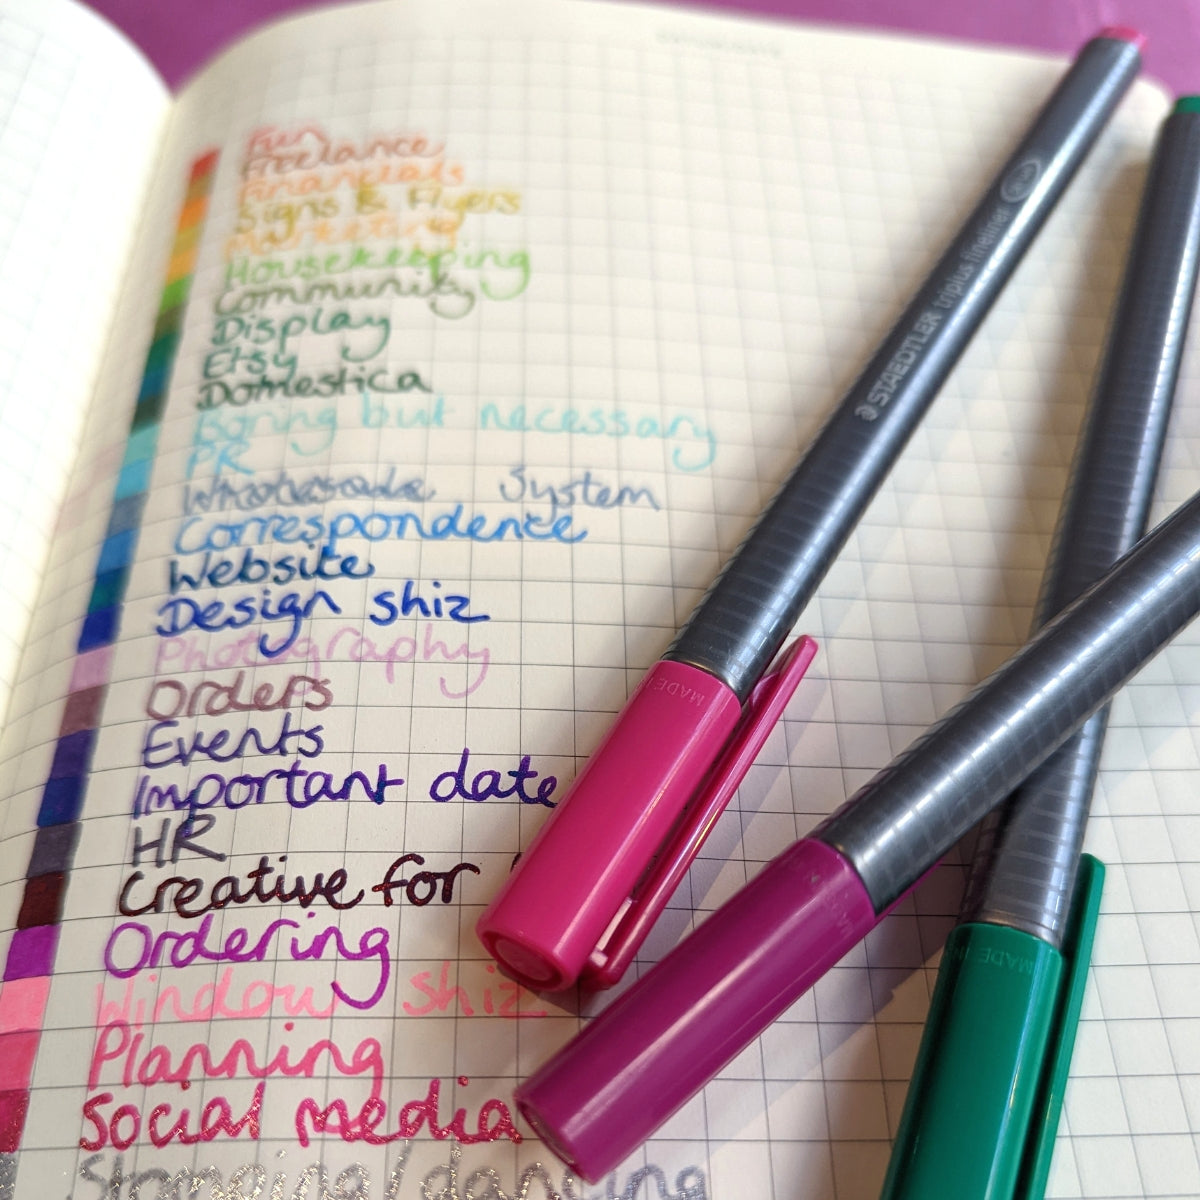 Fun
Freelance
Financials
Signs & Flyers
Marketing
Housekeeping
Community
Display
Etsy
Domestica
Boring but necessary
PR
Wholesale System
Correspondence
Website
Design shiz
Photography
Orders
Events
Important date
HR
Creative for
Ordering
Window shiz
Planning
Social media
Stamping/dancing
STAEDTLER triplus fineliner
MADE IN
MADE IN